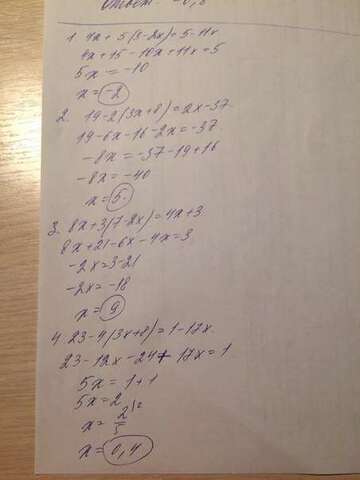 Ответ: -0,8
1. 4x + 5(3-2x) = 5-11x
4x+15-10x+11x=5
5x = -10
x = -2
2. 19-2(3x+8)=2x-37
19-6x-16-2x=-37
-8x=-37-19+16
-8x=-40
x=5
3. 8x+3(7-2x)=4x+3
8x+21-6x-4x=3
-2x=3-21
-2x=-18
x=9
4. 23-4(3x+8)=1-17x
23-12x-24+17x=1
5x=1+1
5x=2
x=2/5
x=0,4